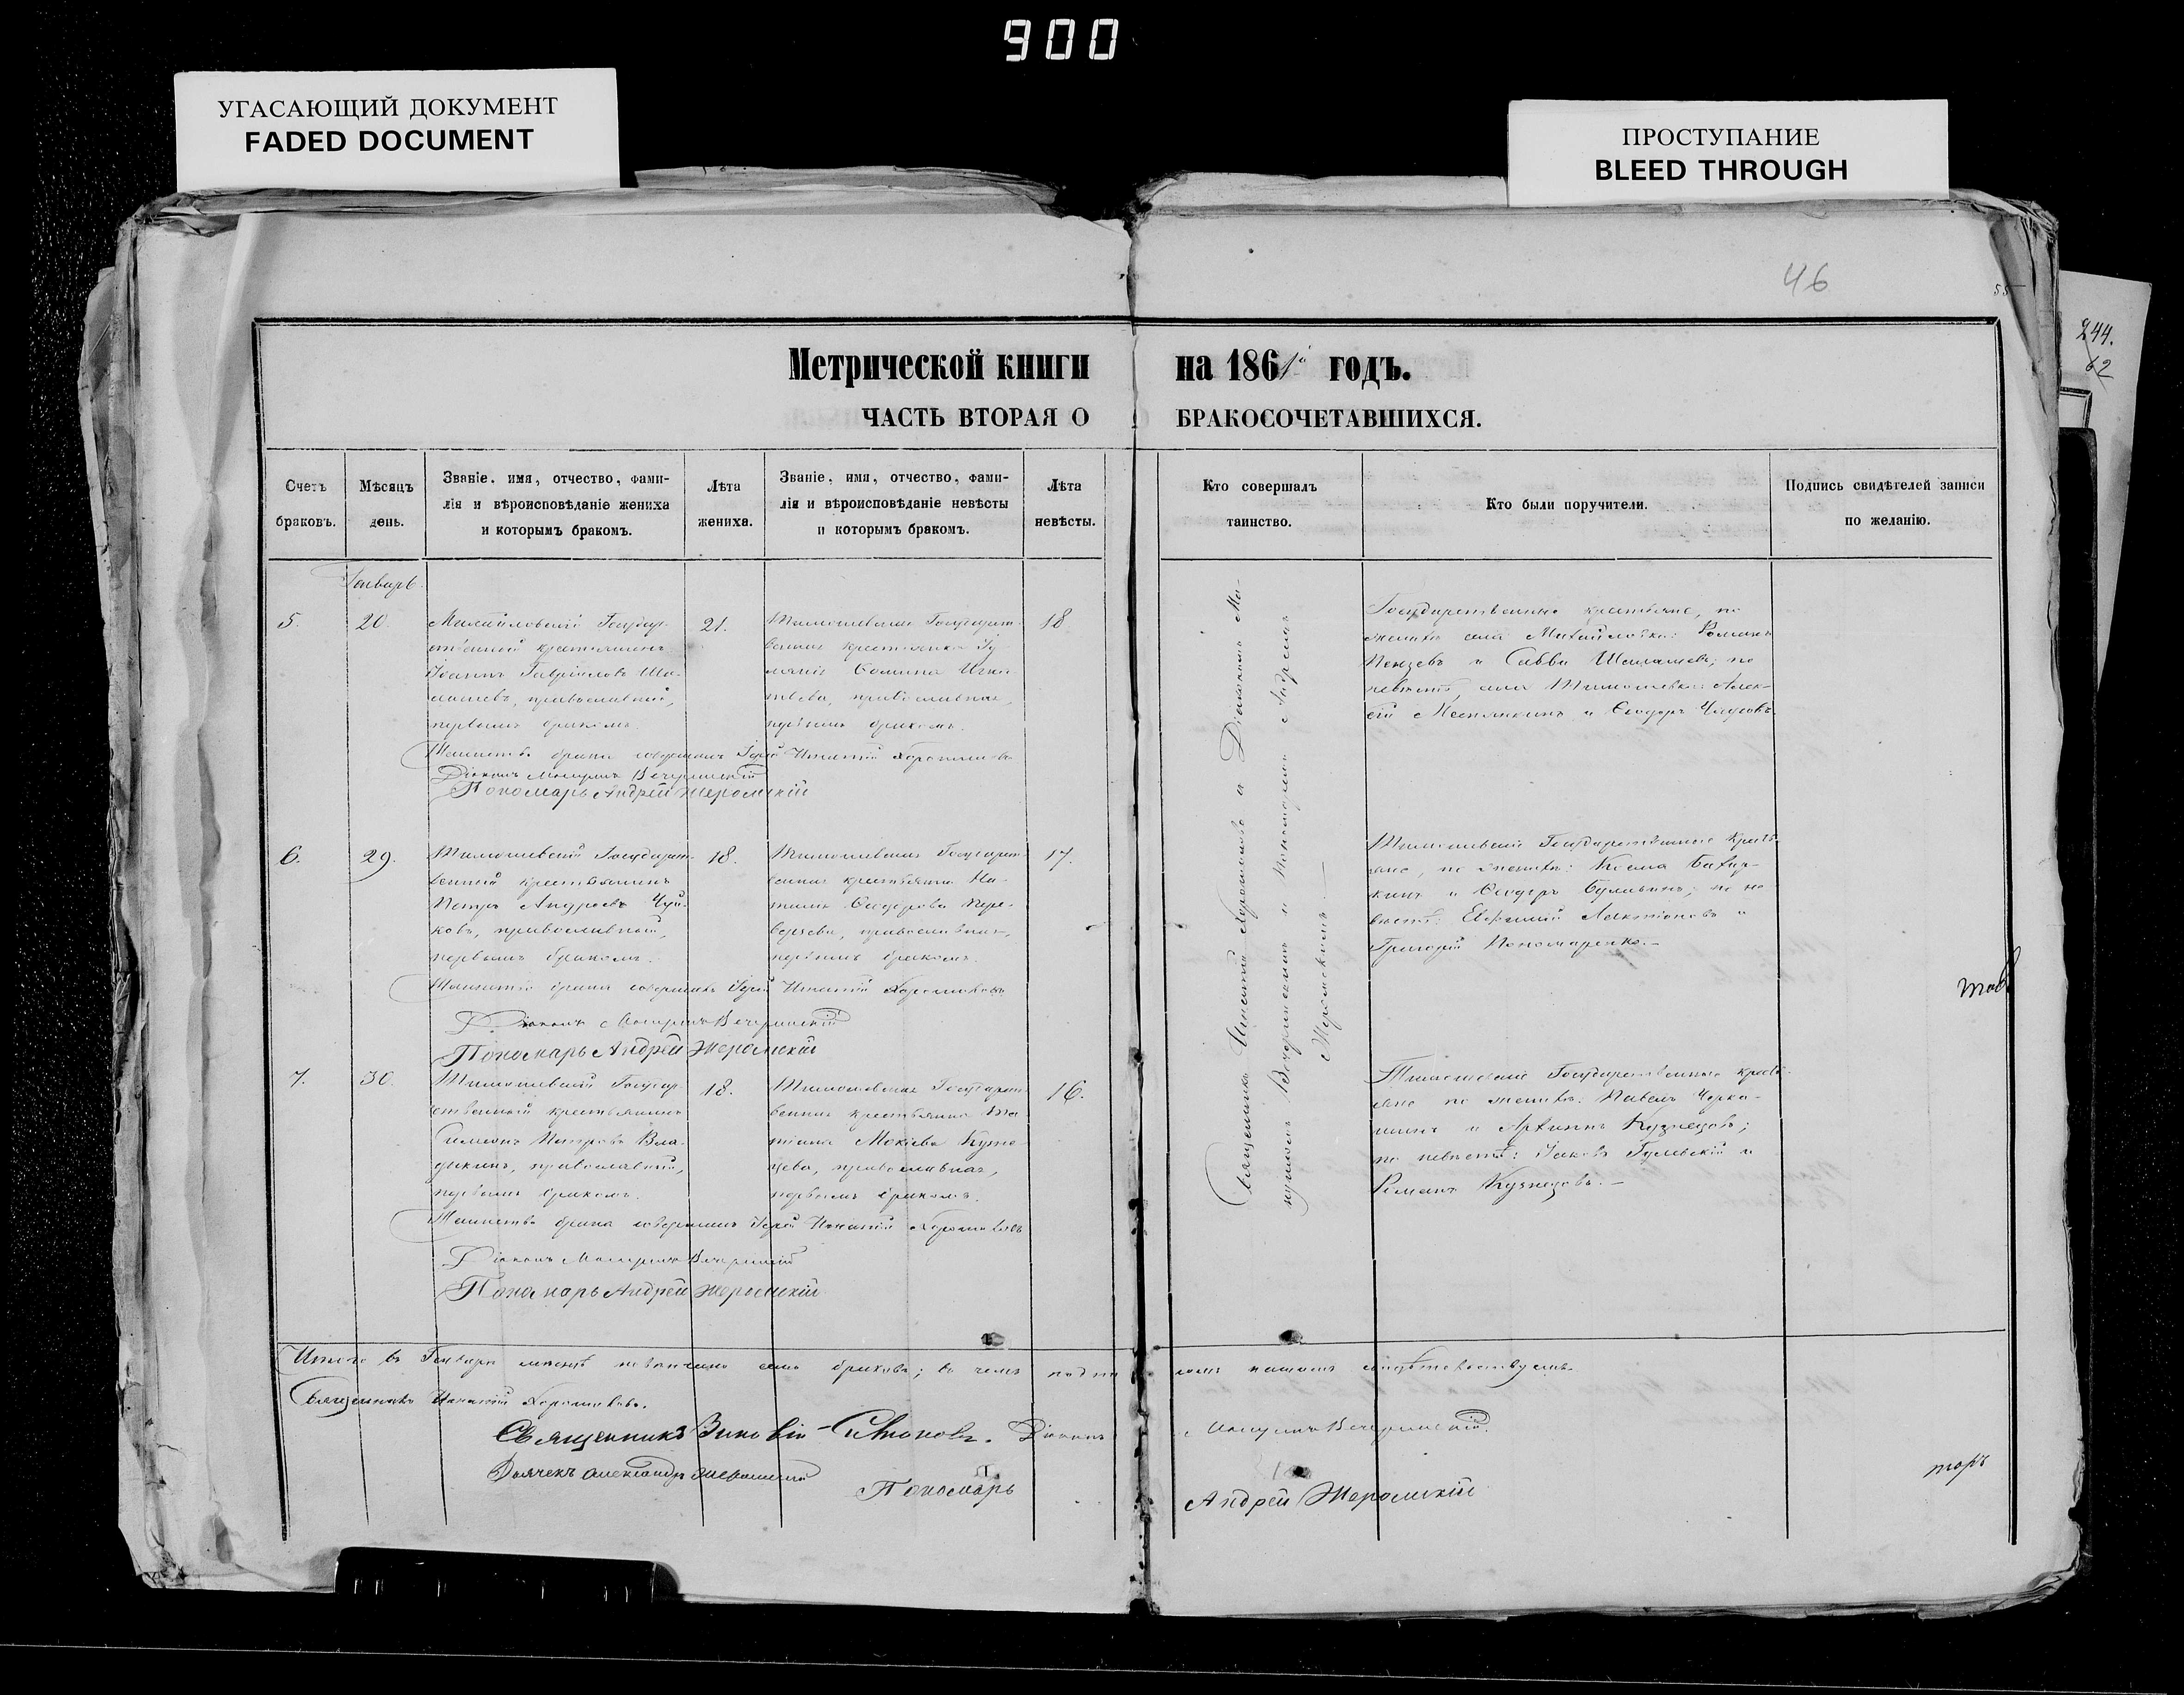 900
УГАСАЮЩИЙ ДОКУМЕНТ
FADED DOCUMENT
ПРОСТУПАНИЕ
BLEED THROUGH
46
55
244.
62
Метрической книги на 1861 годъ.
ЧАСТЬ ВТОРАЯ О БРАКОСОЧЕТАВШИХСЯ.
Счетъ браковъ.
Мѣсяцъ день.
Званіе, имя, отчество, фами-
лія и вѣроисповѣданіе жениха
и которымъ бракомъ.
Лѣта жениха.
Званіе, имя, отчество, фами-
лія и вѣроисповѣданіе невѣсты
и которымъ бракомъ.
Лѣта невѣсты.
Кто совершалъ таинство.
Кто были поручители.
Подпись свидѣтелей записи
по желанію.
Генварь
5.
20.
Михайловскій Государ-
ственный крестьянинъ
Іоаннъ Гавріиловъ
православный,
первымъ бракомъ.
21.
Тимошевская Государст-
венная крестьянка
православная,
первымъ бракомъ.
18
Государственные крестьяне, по
женихѣ села Михайловки: Романъ
Пензевъ и Савва по
невѣстѣ, села Тимошевки: Алек-
сѣй и Ѳеодоръ
Таинство брака совершалъ Іерей Игнатій Хорошковъ
Діаконъ Вечеринскій
Пономарь Андрей Жеромскій
6.
29.
Тимошевскій Государст-
венный крестьянинъ
Петръ Андреевъ Чуй-
ковъ, православный,
первымъ бракомъ.
18.
Тимошевская Государст-
венная крестьянка На-
талія Ѳеодорова Пере-
православная,
первымъ бракомъ.
17.
Тимошевскіе Государственные кресть-
яне, по женихѣ: Косма
и Ѳеодоръ по не-
вѣстѣ: Евфимій Лактіоновъ и
Григорій Пономаренко.—
Таинство брака совершалъ Іерей Игнатій Хорошковъ
Діаконъ Вечеринскій
Пономарь Андрей Жеромскій
7.
30.
Тимошевскій Государ-
ственный крестьянинъ
Симеонъ Петровъ Вла-
дыкинъ, православный,
первымъ бракомъ.
18.
Тимошевская Государст-
венная крестьянка Та-
тіана Мокіева Кузне-
цева, православная,
первымъ бракомъ.
16.
Тимошевскіе Государственные кресть-
яне по женихѣ: Павелъ Черка-
шинъ и Архиппъ Кузнецовъ;
по невѣстѣ: Іаковъ Гулевскій и
Романъ Кузнецовъ.—
Таинство брака совершалъ Іерей Игнатій Хорошковъ
Діаконъ Вечеринскій
Пономарь Андрей Жеромскій
Священникъ Игнатій Хорошковъ и Діаконъ
Вечеринскимъ и Пономаремъ Андреемъ
Жеромскимъ.—
Итого въ Генварѣ мѣсяцѣ повѣнчано семь браковъ; въ чемъ подписомъ нашимъ свидѣтельствуемъ.
Священникъ Игнатій Хорошковъ.
Священникъ Зиновій Діаконъ Вечеринскій.
Дьячекъ Александръ Жеромскій
Пономарь Андрей Жеромскій